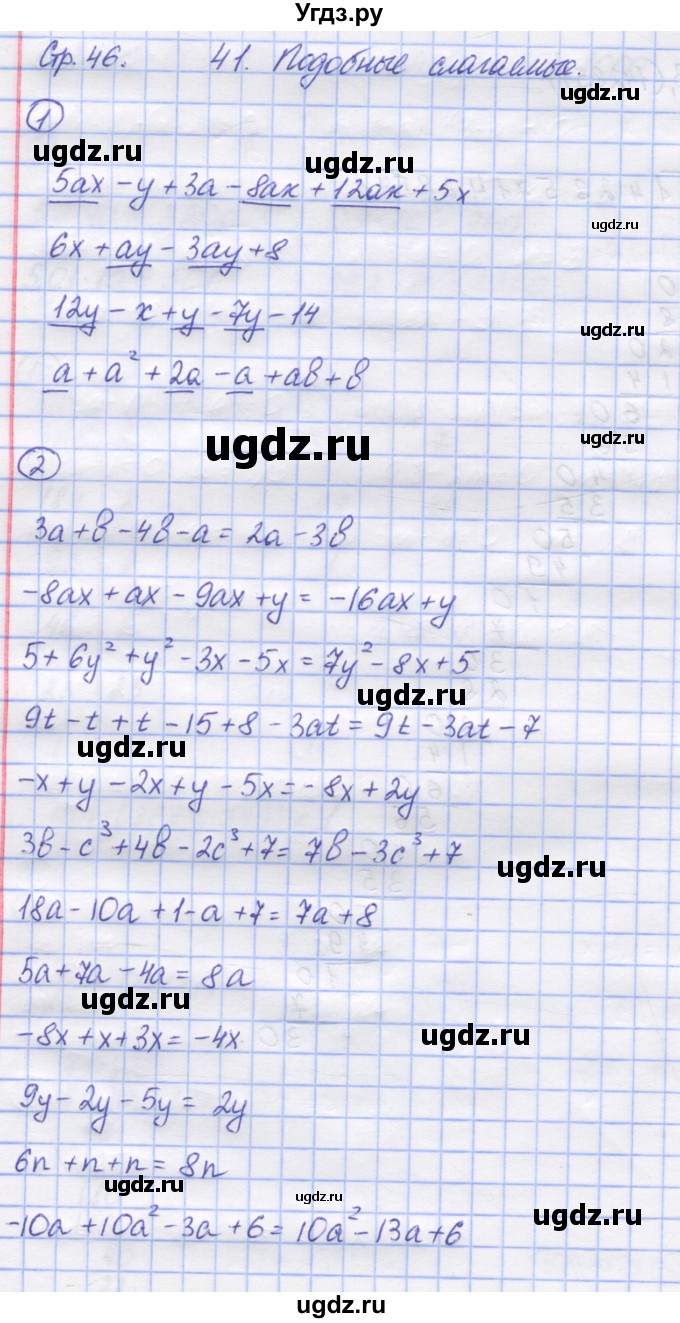 Угдз.ру
Стр. 46. 41. Подобные слагаемые.
ugdz.ru
1
ugdz.ru
ugdz.ru
5ax - y + 3a - 8ax + 12ax + 5x
ugdz.ru
6x + ay - 3ay + 8
12y - x + y - 7y - 14
ugdz.ru
a + a² + 2a - a + ав + в
ugdz.ru
ugdz.ru
2
3a + в - 4в - a = 2a - 3в
-8ax + ax - 9ax + y = -16ax + y
5 + 6y² + y² - 3x - 5x = 7y² - 8x + 5
ugdz.ru
9t - t + t - 15 + 8 - 3at = 9t - 3at - 7
ugdz.ru
-x + y - 2x + y - 5x = -8x + 2y
3в - c³ + 4в - 2c³ + 7 = 7в - 3c³ + 7
ugdz.ru
18a - 10a + 1 - a + 7 = 7a + 8
5a + 7a - 4a = 8a
ugdz.ru
-8x + x + 3x = -4x
ugdz.ru
9y - 2y - 5y = 2y
6n + n + n = 8n
ugdz.ru
ugdz.ru
ugdz.ru
-10a + 10a² - 3a + 6 = 10a² - 13a + 6
ugdz.ru